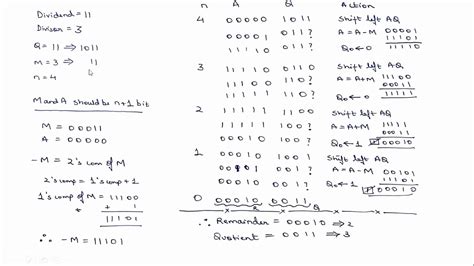 Dividend = 11
Divisor = 3
Q = 11 ⇒ 1011
M = 3 ⇒ 11
n = 4
M and A should be n+1 bit
M = 00011
A = 00000
-M = 2's com of M
2's comp = 1's comp + 1
1's comp of M = 11100
+ 1
11101
∴ -M = 11101
n A Q Action
4 00000 1011 Shift left AQ
00001 011? A = A-M
11110 0110 Q₀ ← 0
00001
11101
11110
3 11110 0110 Shift left AQ
11100 110? A = A+M
11111 1100 Q₀ ← 0
11100
00011
11111
2 11111 1100 Shift left AQ
11111 100? A = A+M
00010 1001 Q₀ ← 1
11111
00011
00010
1 00010 1001 Shift left AQ
001? A = A-M
00010 0011 Q₀ ← 1
11101
00010
0 00010 0011
∴ Remainder = 00010 ⇒ 2
Quotient = 0011 ⇒ 3